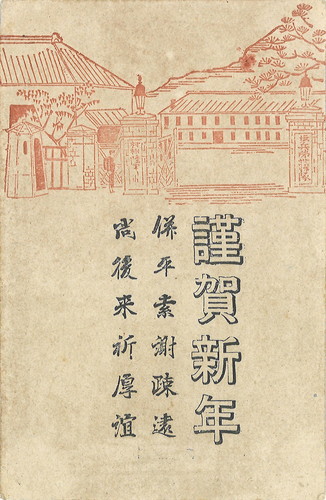 謹賀新年
併平素謝疎遠
尚後来祈厚誼